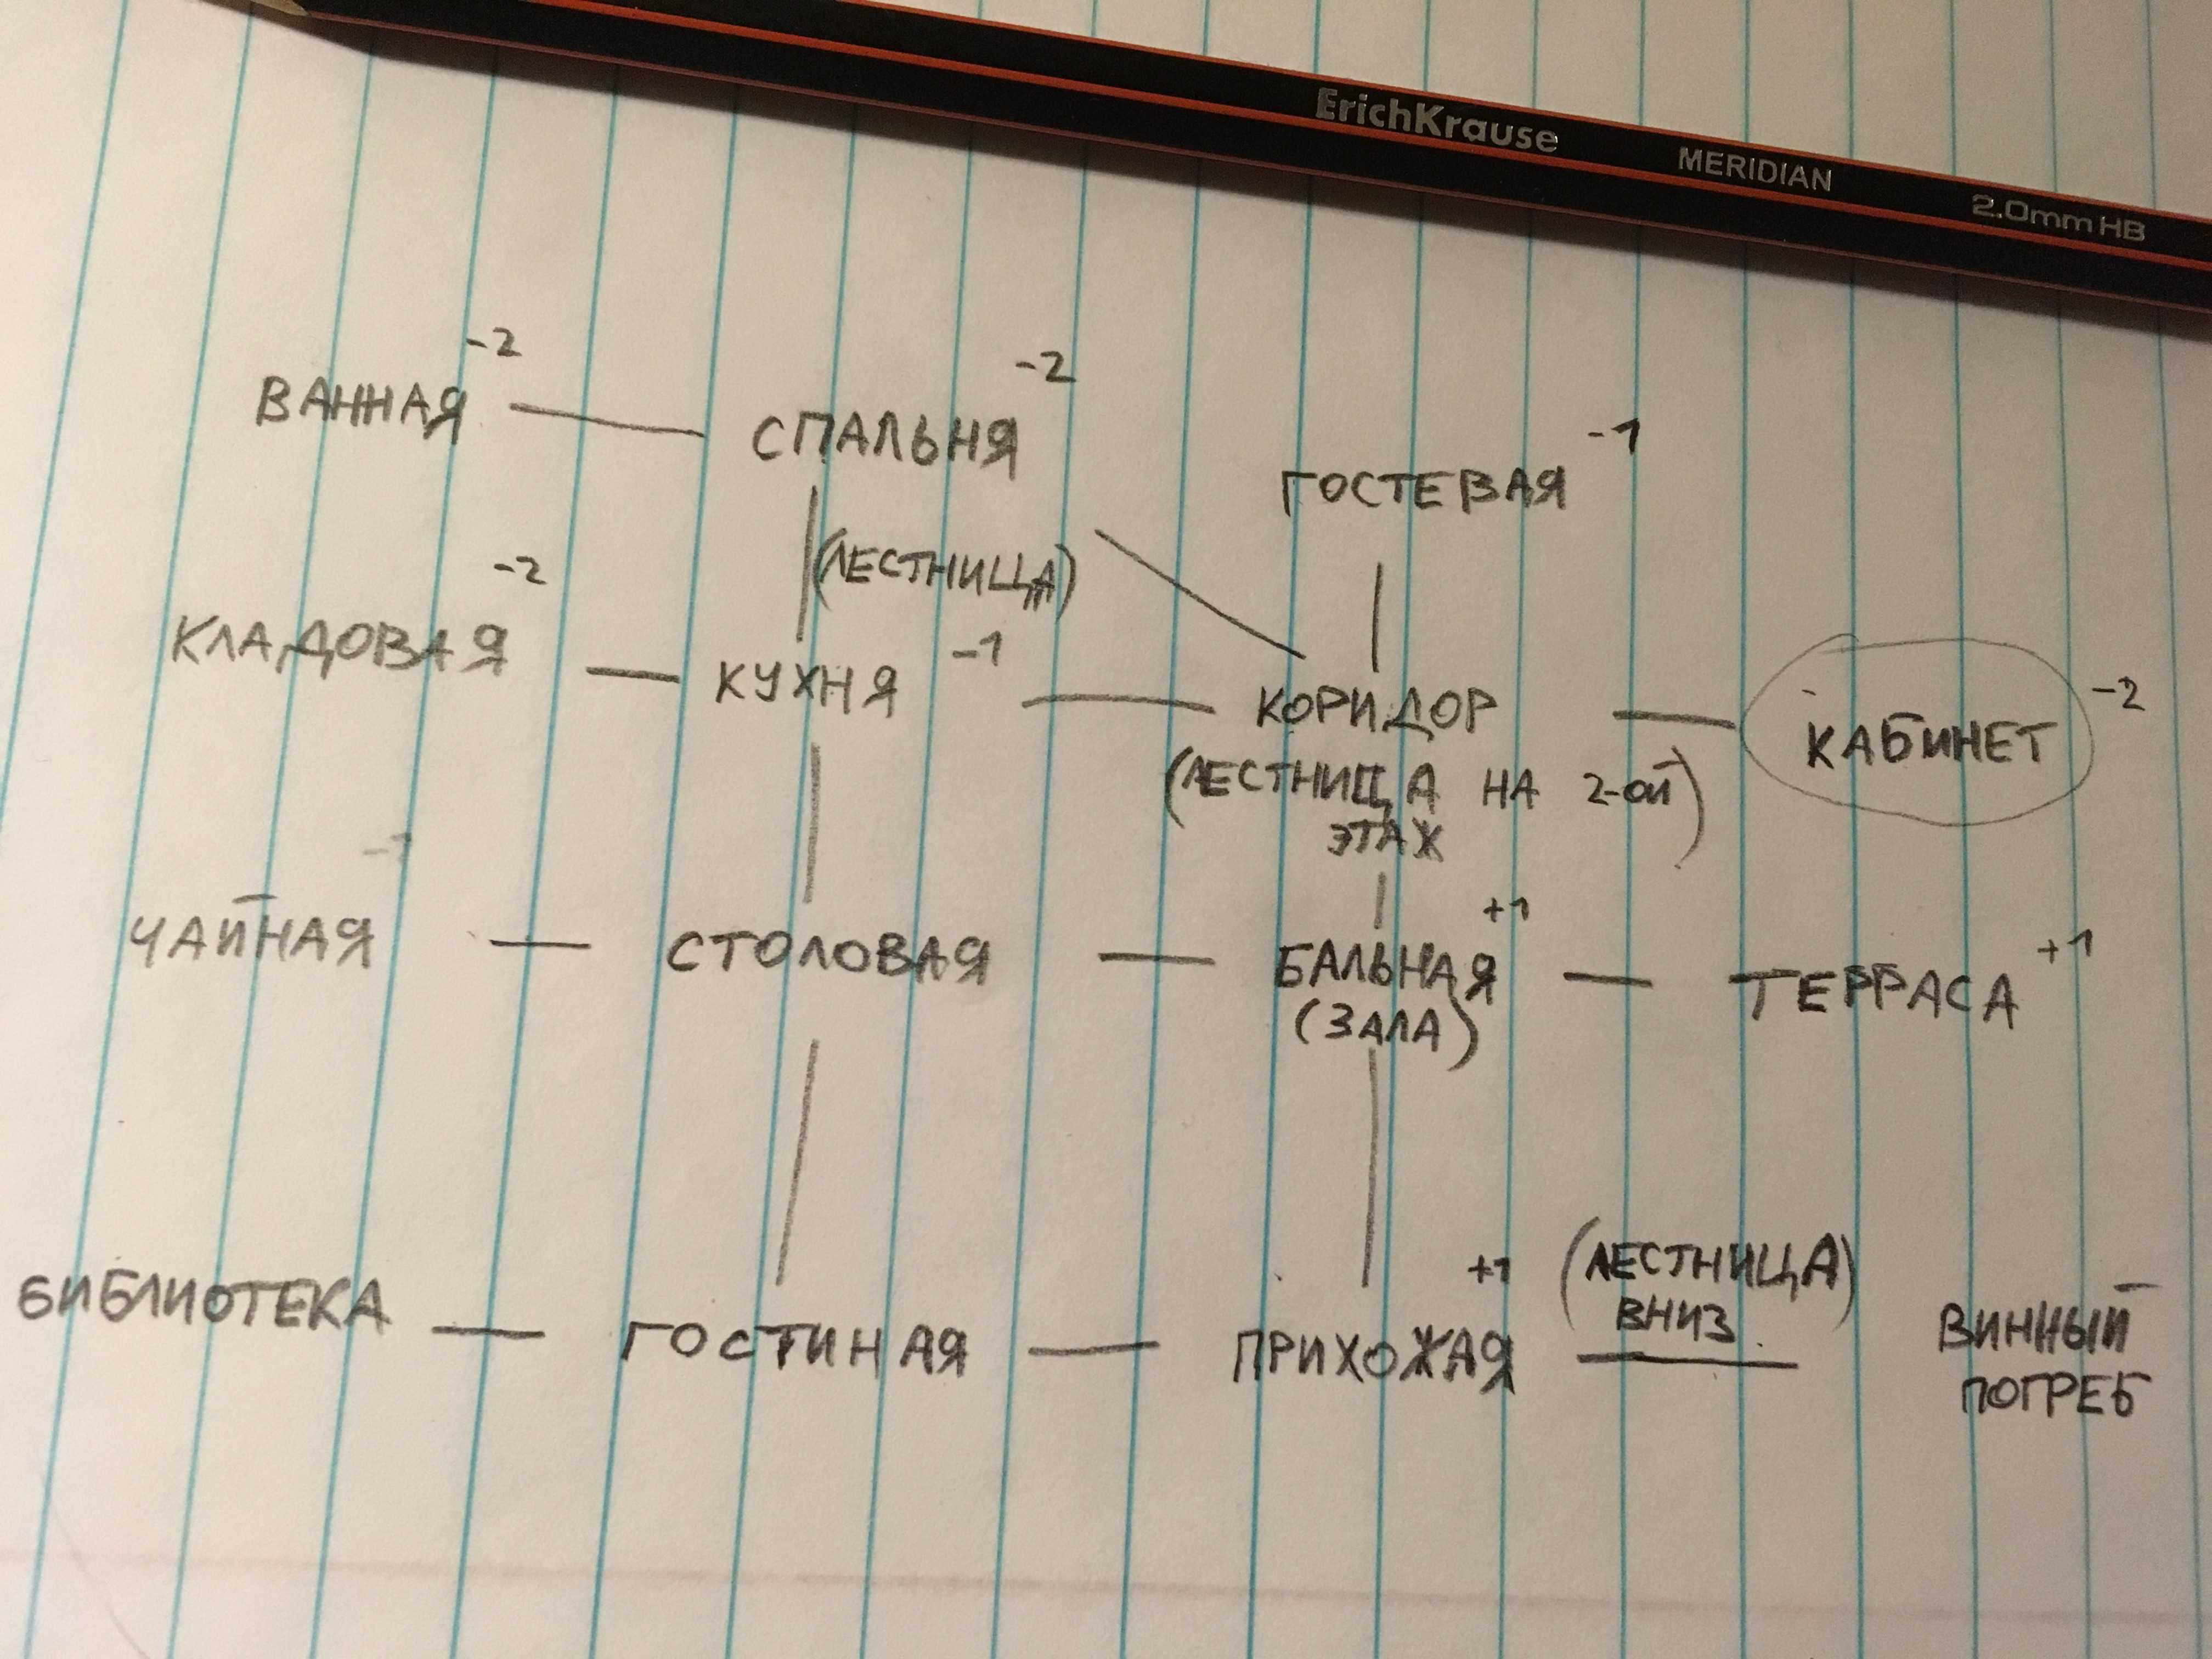 ErichKrause MERIDIAN 2.0mm HB
-2
ВАННАЯ
-2
СПАЛЬНЯ
-1
ГОСТЕВАЯ
(ЛЕСТНИЦА)
-2
КЛАДОВАЯ
КУХНЯ -1
КОРИДОР
(ЛЕСТНИЦА НА 2-ОЙ)
ЭТАЖ
КАБИНЕТ -2
ЧАЙНАЯ
СТОЛОВАЯ
+1
БАЛЬНАЯ
(ЗАЛА)
ТЕРРАСА +1
БИБЛИОТЕКА
ГОСТИНАЯ
+1
ПРИХОЖАЯ
(ЛЕСТНИЦА)
ВНИЗ
ВИННЫЙ
ПОГРЕБ